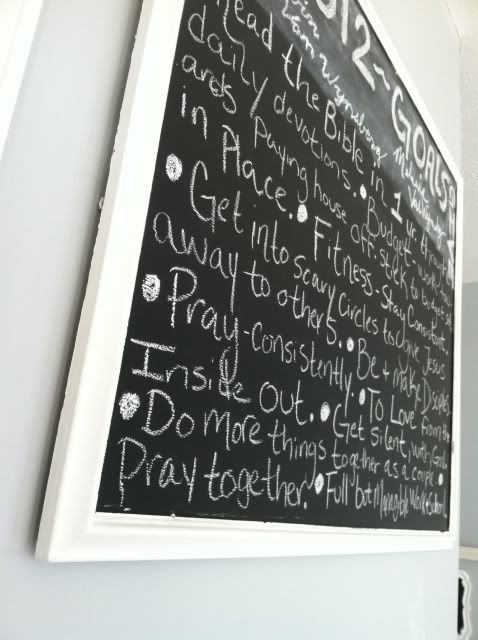 012~GOALS
Read the Bible in 1 yr. through
daily devotions. • Budget - work
paying house off. stick to budget
in Place. • Fitness - Stay Consistent.
• Get into scary circles to give Jesus
away to others. • Be + make Disciples
• Pray - consistently. • To Love from the
Inside out. • Get silent, with God.
• Do more things together as a couple. •
Pray together. • Full but Manegible Work + School